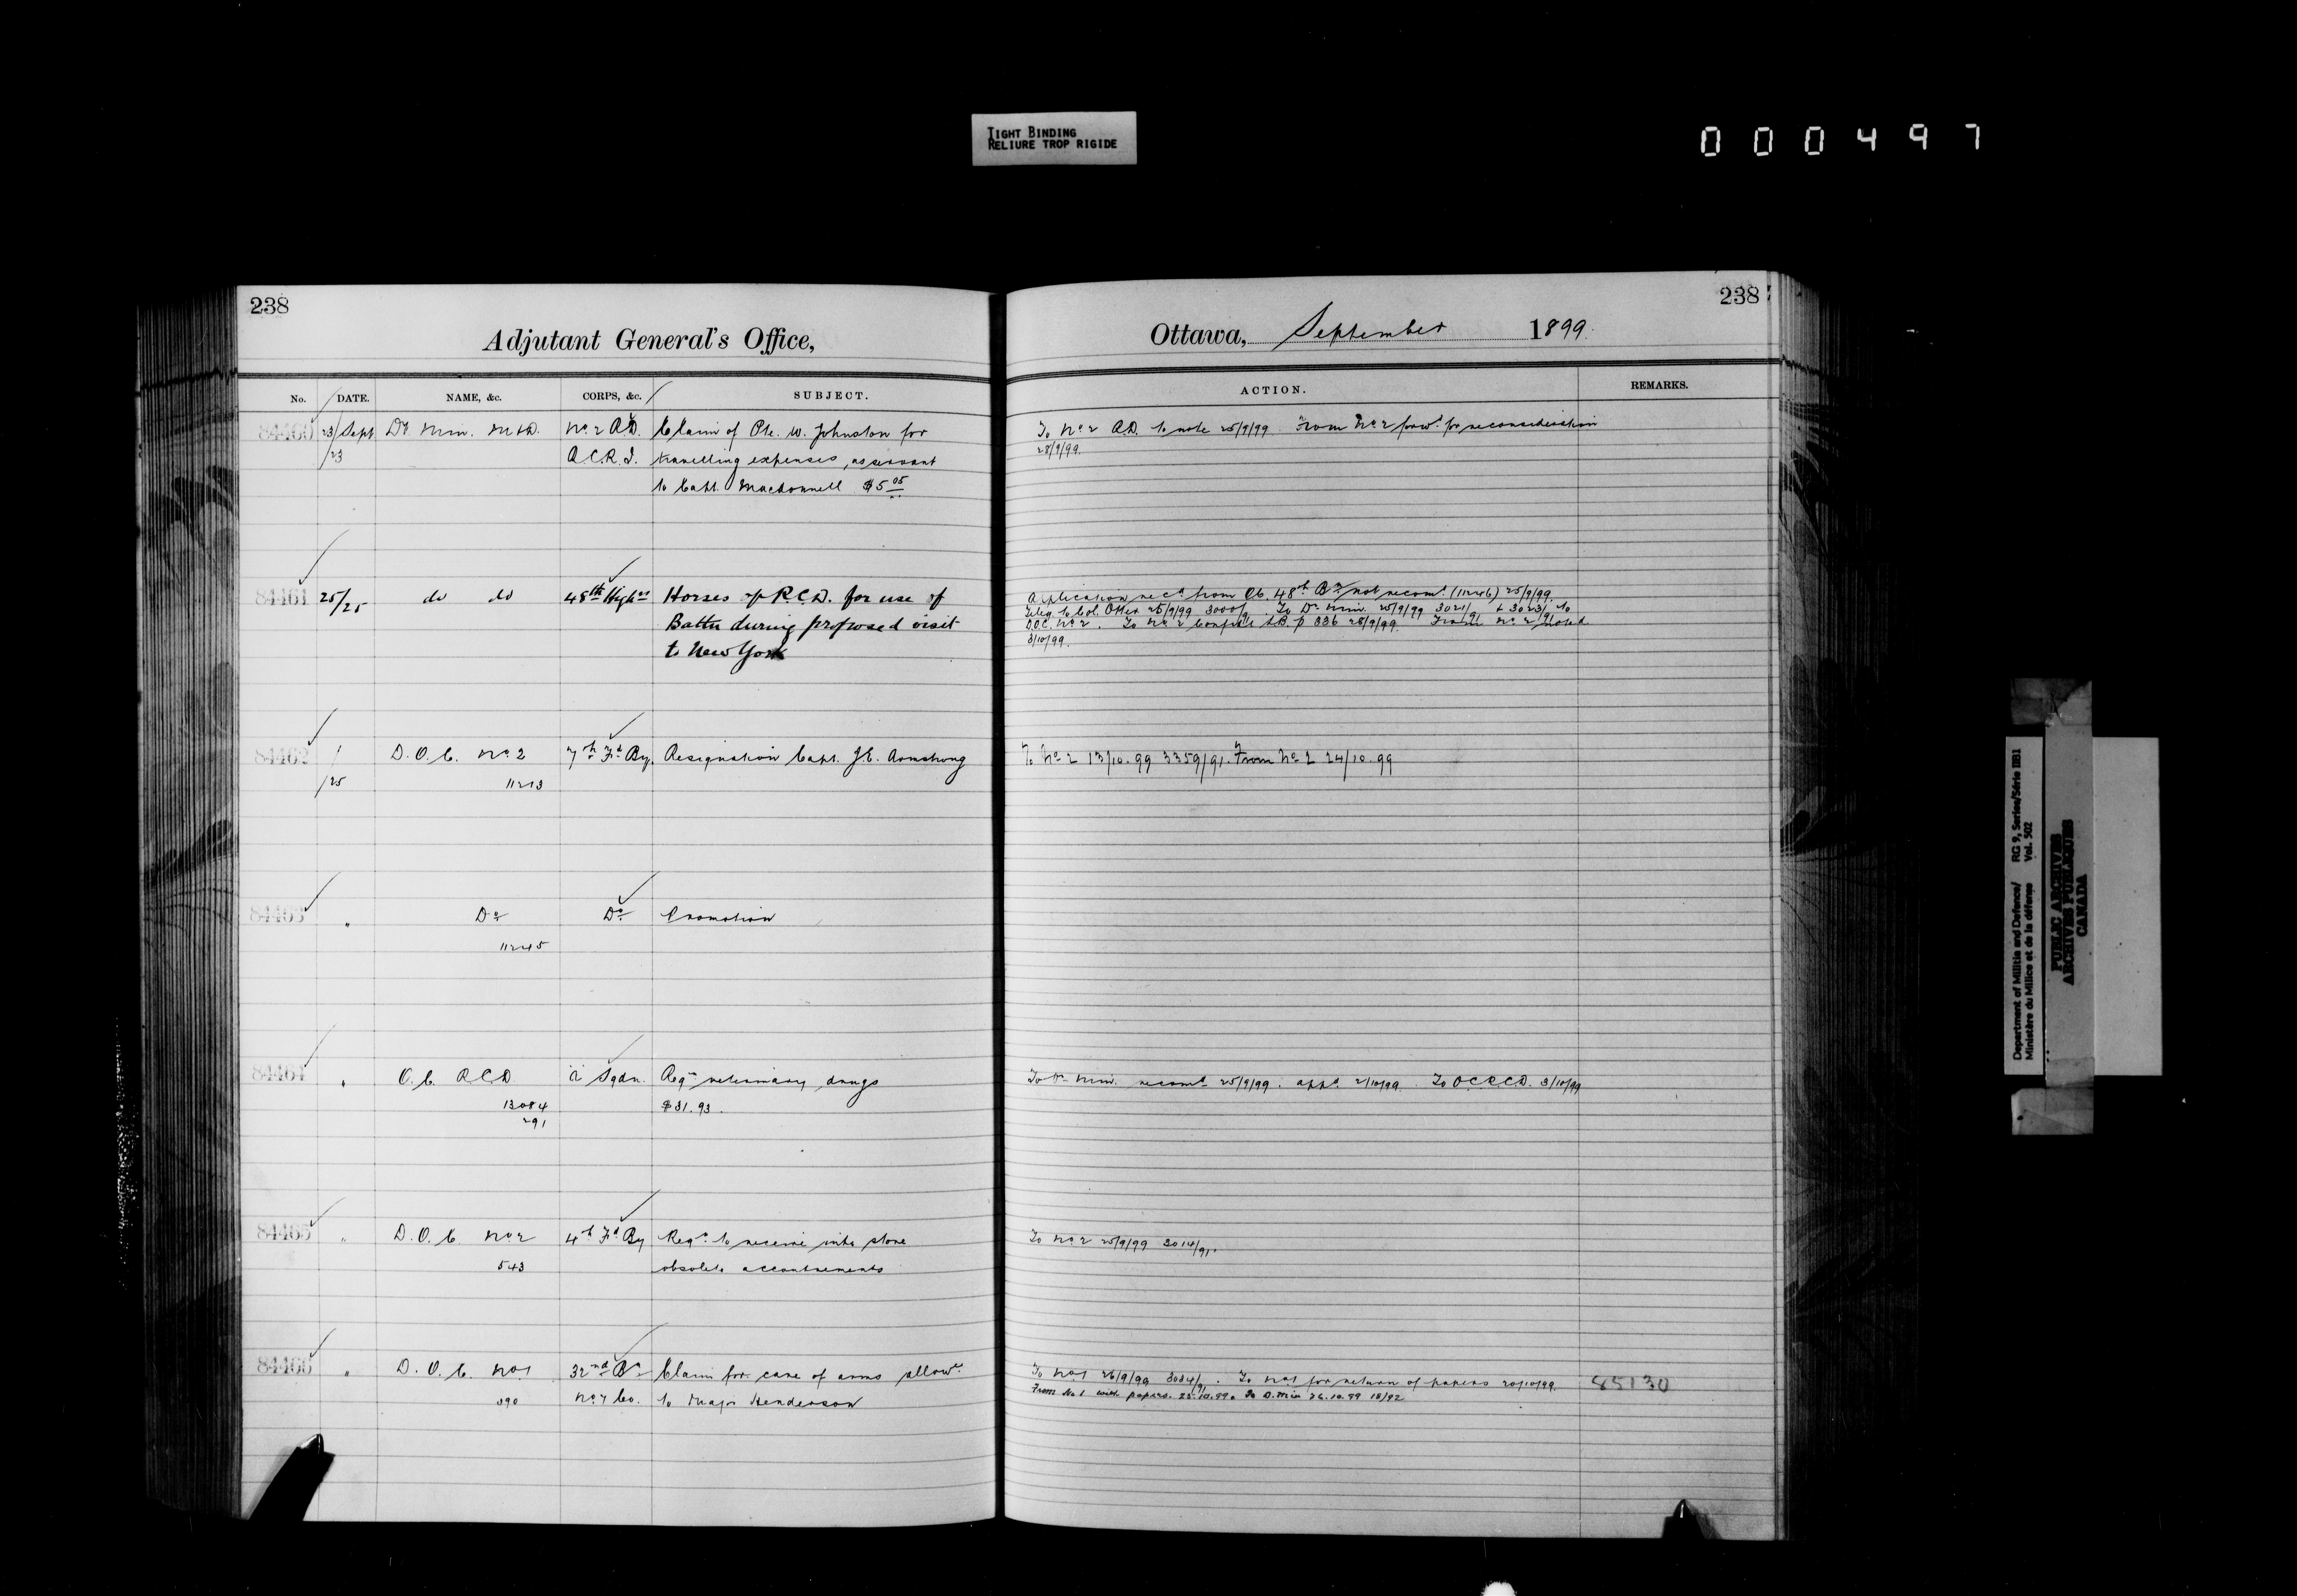 TIGHT BINDING
RELIURE TROP RIGIDE
000497
238
Adjutant General's Office,
No. DATE. NAME, &c. CORPS, &c. SUBJECT.
84460 23/Sept Dy. Min. M&D. No. 2 A.D. Claim of Pte. W. Johnston for
/23 R.C.R.I. travelling expenses, as servant
to Capt. Macdonnell $5.05
84461 25/25 do do 48th Highrs Horses of R.C.D. for use of
Battn during proposed visit
to New York
84462 / D.O.C. No 2 7th Fd By. Resignation Capt. J.E. Armstrong
/25 11213
84463 " Do Do Promotion
11245
84464 " O.C. R.C.D. "A" Sqdn. Reqn veterinary drugs
13084 $31.93.
291
84465 " D.O.C. No 2 4th Fd By Reqn. to receive into store
543 obsolete accoutrements
84466 " D.O.C. No 1 32nd Bn Claim for care of arms allowce
390 No. 7 Co. to Major Henderson
238
Ottawa, September 1899.
ACTION. REMARKS.
To No 2 A.D. to note 25/9/99. From No 2 forwd. for reconsideration
28/9/99.
Application recd. from OC. 48th Bn not recomd. (11246) 25/9/99.
Teleg. to Col. Otter 25/9/99 3000/91. To Dy. Min. 25/9/99 3021/91 & 3023/91 to
D.O.C. No 2. To No 2 Confdl LB. p 336 28/9/99. From No 2 noted
3/10/99.
To No 2 13/10.99 3359/91. From No 2 24/10.99
To Dy. Min. recomd. 25/9/99. appd. 2/10/99. To O.C.R.C.D. 3/10/99
To No 2 25/9/99 3014/91.
To No 1 26/9/99 3034/91. To No 1 for return of papers 20/10/99. 85130
From No 1 with papers. 25.10.99. To D.Min 26.10.99 18/92
Department of Militia and Defence/ RG 9, Series/Série IIB1
Ministère du Milice et de la défense Vol. 502
PUBLIC ARCHIVES
ARCHIVES PUBLIQUES
CANADA